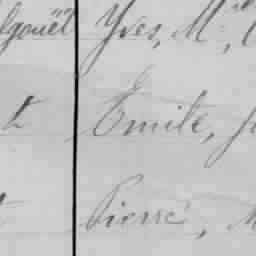 lgouët Yves, M
t Emile, J
Pierre, M